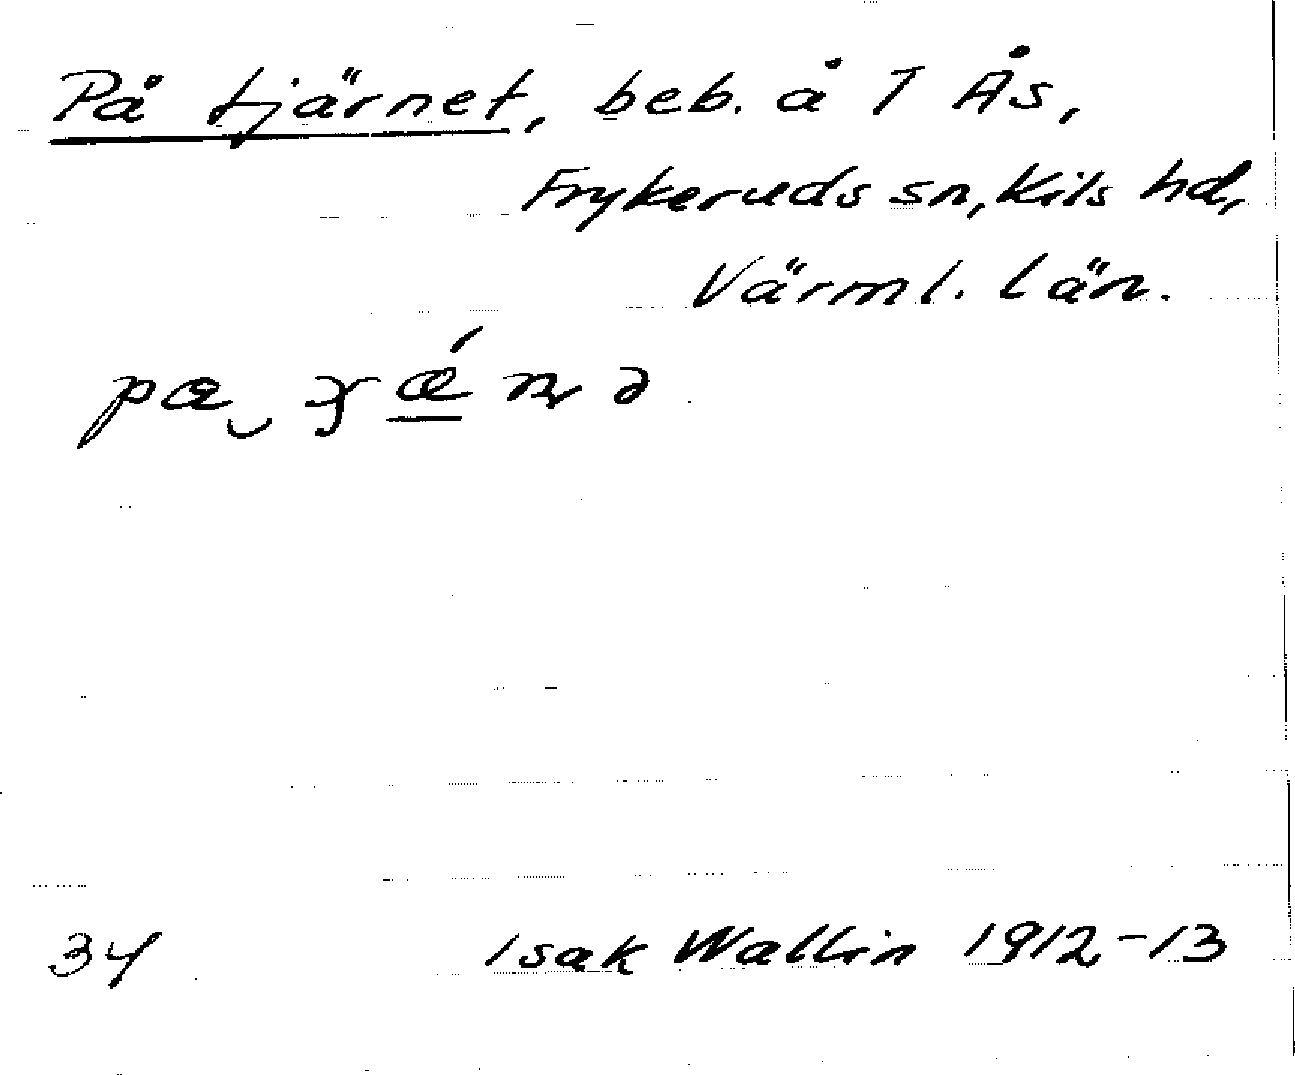 På tjärnet, beb. å T Ås,
Frykeruds sn, Kils hd,
Värml. län.
34
Isak Wallin 1912-13